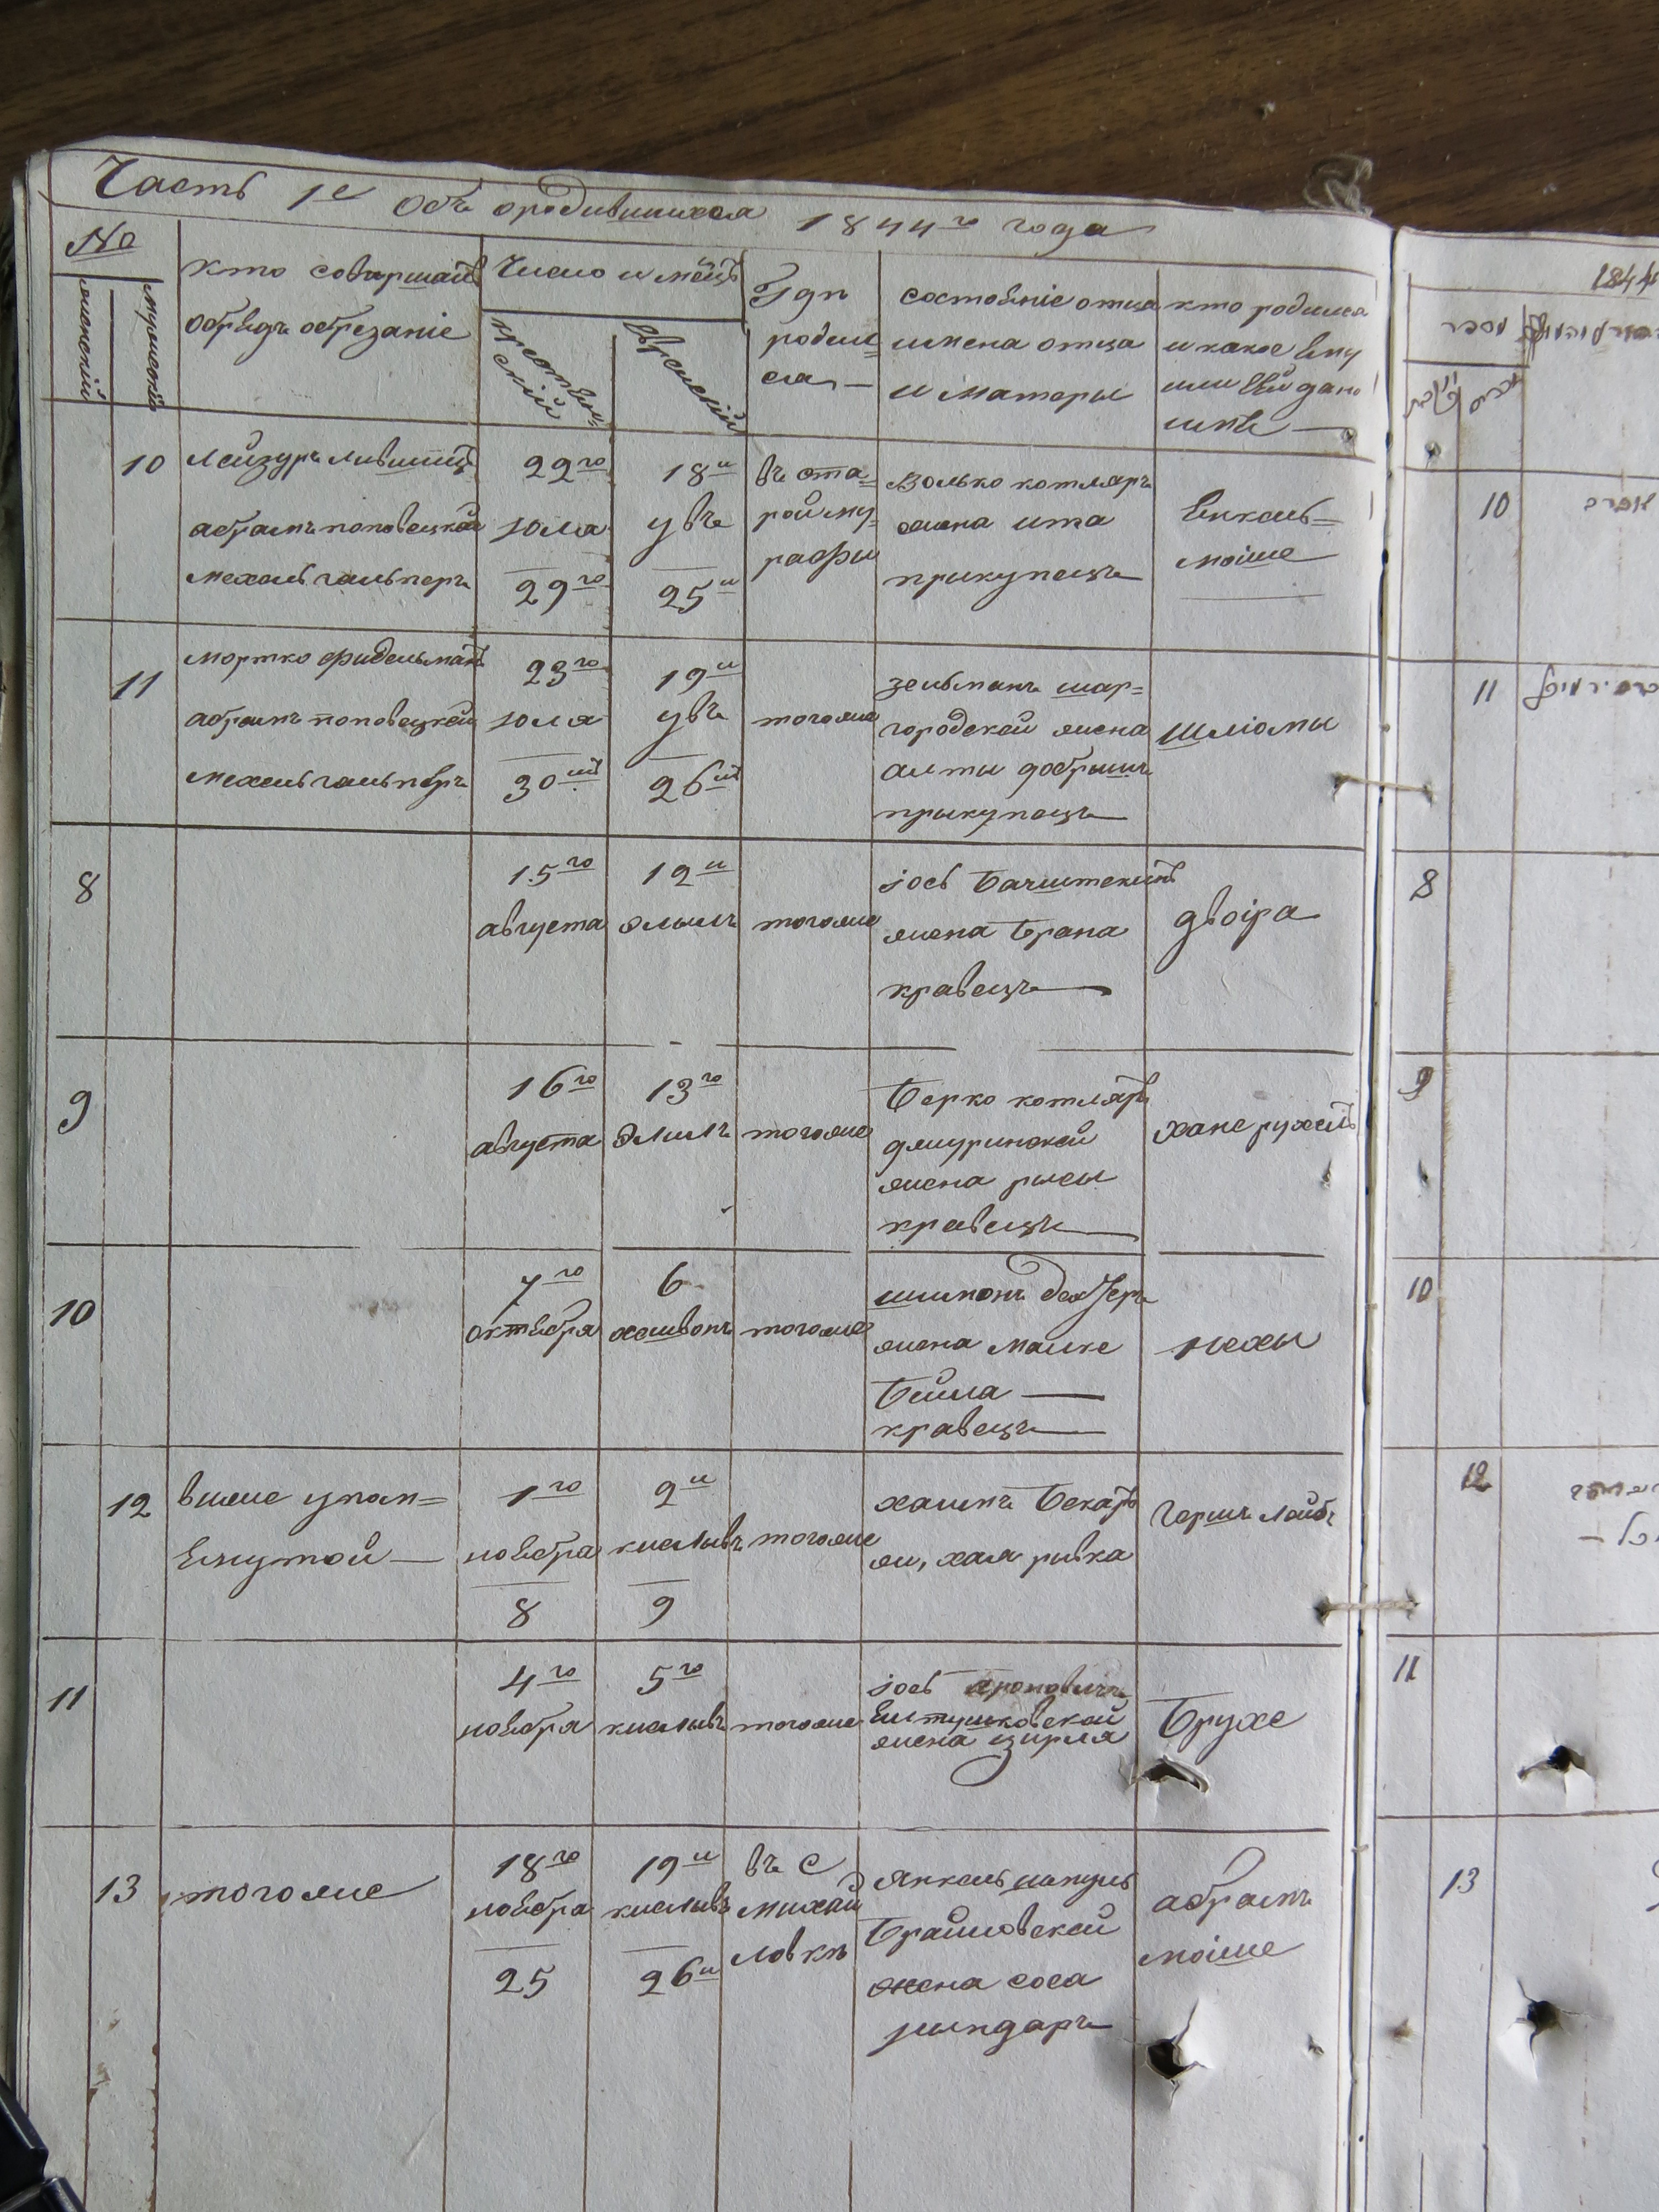 Часть 1е Объ ородившихся 1844го года
№
женскій
мужескій
кто совершалъ
обрядъ обрезаніе
Число и мѣсецъ
христіан=
скій
еврейскій
Гдѣ
родил=
ся
состоеніе отца
имена отца
и матеры
кто родился
и какое ему
или ей дано
имѣ
10
Лейзуръ лившицъ
абрамъ поповецкой
мехель гальперъ
22го
юля
29го
18и
увъ
25и
въ ста=
рой му=
рафы
Волько котляръ
жена ита
прикупецъ
Енкель=
моіше
11
мортко фидельманъ
абрамъ поповецкой
мехель гальперъ
23го
юля
30ий
19и
увъ
26ий
тогоже
зельманъ шар=
городской жена
алты добрышъ
прикупецъ
шліомы
8
15го
августа
12и
элылъ
тогоже
іось
жена брана
кравецъ
двоіра
9
16го
августа
13го
элилъ
тогоже
берко котляръ
джуринской
жена рысы
кравецъ
хане рухель
10
7го
октебря
6
хешвонъ
тогоже
шимонъ
жена малке
бейла
кравецъ
нехы
12
вшше упом=
енутой
1го
ноебра
8
2и
кислывъ
9
тогоже
хаимъ бекаръ
ж, хая ривка
Гершъ лейбъ
11
4го
ноебра
5го
кислывъ
тогоже
іось
жена цирля
Брухе
13
тогоже
18го
ноебра
25
19и
кислывъ
26и
въ с
михай
ловкѣ
Янкель
Браиловской
жена соса
рындаръ
абрамъ
моіше
1844
10
11
8
9
10
12
11
13